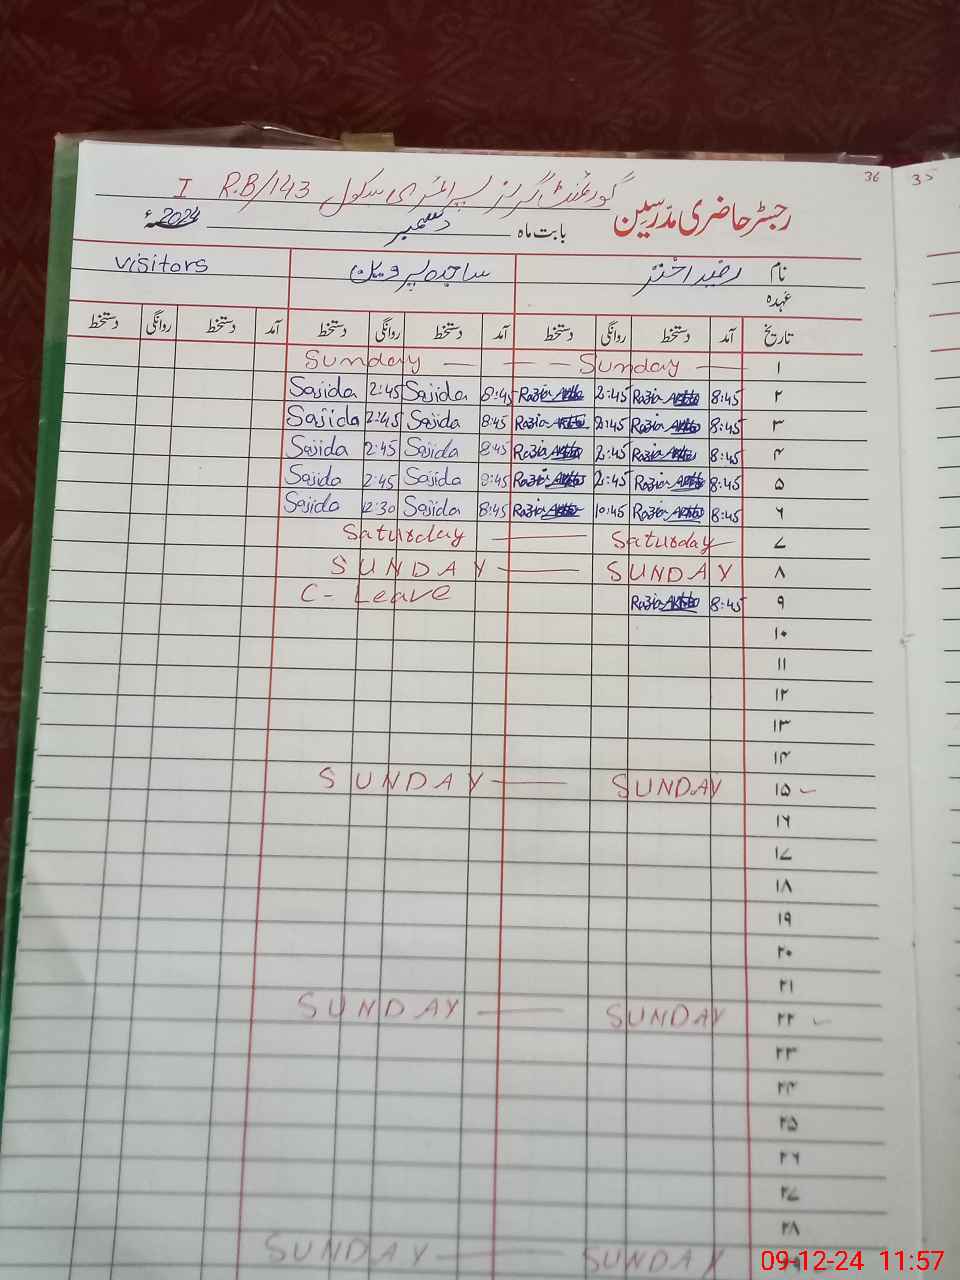 36
35
گورنمنٹ گرلز پرائمری سکول 143/R.B I
رجسٹر حاضری مدرسین
بابت ماہ دسمبر 2024ء
نام رضیہ اختر ساجدہ پروین Visitors
عہدہ
تاریخ آمد دستخط روانگی دستخط آمد دستخط روانگی دستخط آمد دستخط روانگی دستخط
۱ Sunday Sunday
۲ 8:45 Razia Akhtar 2:45 Razia Akhtar 8:45 Sajida 2:45 Sajida
۳ 8:45 Razia Akhtar 2:45 Razia Akhtar 8:45 Sajida 2:45 Sajida
۴ 8:45 Razia Akhtar 2:45 Razia Akhtar 8:45 Sajida 2:45 Sajida
۵ 8:45 Razia Akhtar 2:45 Razia Akhtar 8:45 Sajida 2:45 Sajida
۶ 8:45 Razia Akhtar 10:45 Razia Akhtar 8:45 Sajida 12:30 Sajida
۷ Saturday Saturday
۸ SUNDAY SUNDAY
۹ 8:45 Razia Akhtar C- Leave
۱۰
۱۱
۱۲
۱۳
۱۴
۱۵ SUNDAY SUNDAY
۱۶
۱۷
۱۸
۱۹
۲۰
۲۱
۲۲ SUNDAY SUNDAY
۲۳
۲۴
۲۵
۲۶
۲۷
۲۸
SUNDAY SUNDAY
09-12-24 11:57